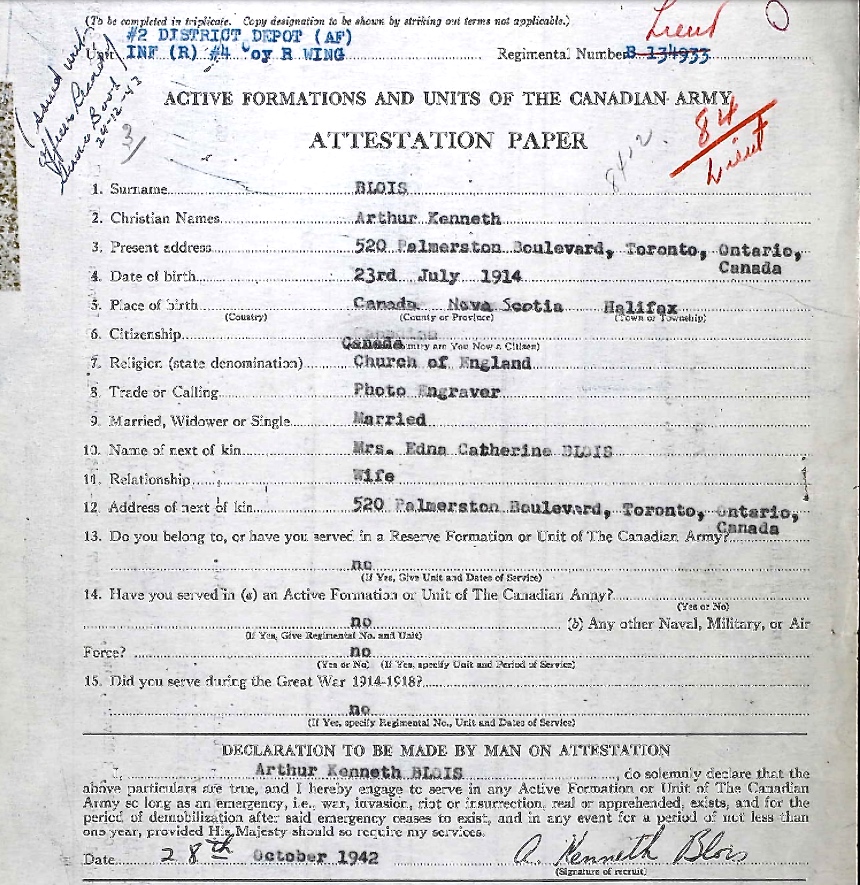 (To be completed in triplicate. Copy designation to be shown by striking out terms not applicable.)
#2 DISTRICT DEPOT (AF)
Unit INF (R) #4 Coy R WING Regimental Number B 134933
Lieut
Issued with
Officers
Service Book
24-12-43
3/
ACTIVE FORMATIONS AND UNITS OF THE CANADIAN ARMY
ATTESTATION PAPER
84
Lieut
1. Surname BLOIS
2. Christian Names Arthur Kenneth
3. Present address 520 Palmerston Boulevard, Toronto, Ontario,
Canada
4. Date of birth 23rd July 1914
5. Place of birth Canada Nova Scotia Halifax
(Country) (County or Province) (Town or Township)
6. Citizenship Canadian
Canada Country are You Now a Citizen)
7. Religion (state denomination) Church of England
8. Trade or Calling Photo Engraver
9. Married, Widower or Single Married
10. Name of next of kin Mrs. Edna Catherine BLOIS
11. Relationship Wife
12. Address of next of kin 520 Palmerston Boulevard, Toronto, Ontario,
Canada
13. Do you belong to, or have you served in a Reserve Formation or Unit of The Canadian Army?
no
(If Yes, Give Unit and Dates of Service)
14. Have you served in (a) an Active Formation or Unit of The Canadian Army?
(Yes or No)
no (b) Any other Naval, Military, or Air
(If Yes, Give Regimental No. and Unit)
Force? no
(Yes or No) (If Yes, specify Unit and Period of Service)
15. Did you serve during the Great War 1914-1918?
no
(If Yes, specify Regimental No., Unit and Dates of Service)
DECLARATION TO BE MADE BY MAN ON ATTESTATION
I, Arthur Kenneth BLOIS, do solemnly declare that the
above particulars are true, and I hereby engage to serve in any Active Formation or Unit of The Canadian
Army so long as an emergency, i.e., war, invasion, riot or insurrection, real or apprehended, exists, and for the
period of demobilization after said emergency ceases to exist, and in any event for a period of not less than
one year, provided His Majesty should so require my services.
Date 28th October 1942 A. Kenneth Blois
(Signature of recruit)